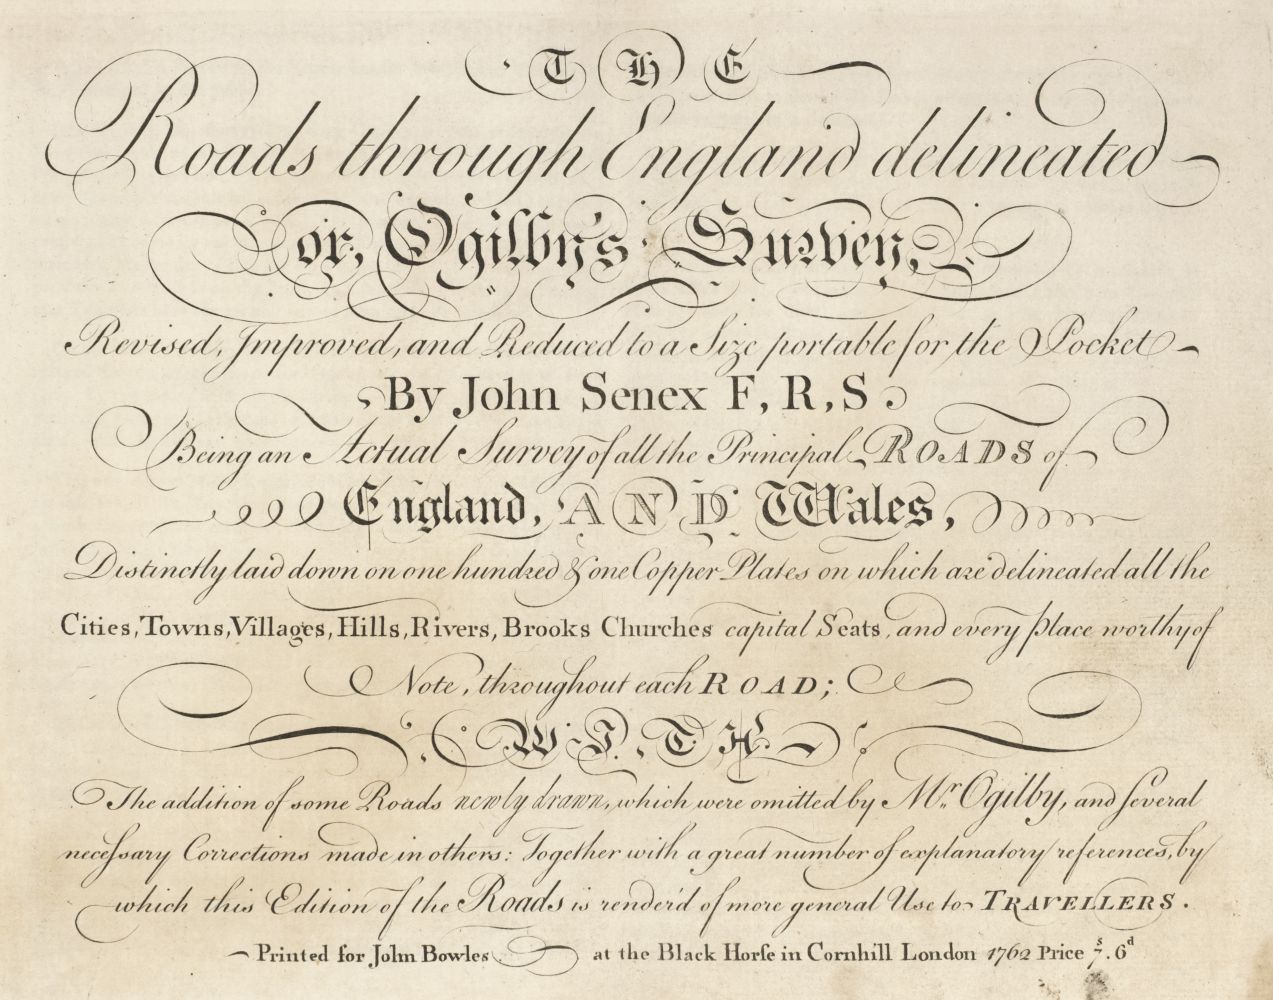 THE
Roads through England delineated
or, Ogilby's Survey,
Revised, Improved, and Reduced to a Size portable for the Pocket
By John Senex F,R,S.
Being an Actual Survey of all the Principal ROADS of
England, AND Wales,
Distinctly laid down on one hundred & one Copper Plates on which are delineated all the
Cities, Towns, Villages, Hills, Rivers, Brooks Churches capital Seats, and every place worthy of
Note, throughout each ROAD;
WITH
The addition of some Roads newly drawn, which were omitted by Mr. Ogilby, and ſeveral
neceſsary Corrections made in others: Together with a great number of explanatory references, by
which this Edition of the Roads is render'd of more general Use to TRAVELLERS.
Printed for John Bowles at the Black Horſe in Cornhill London 1762 Price 7s. 6d